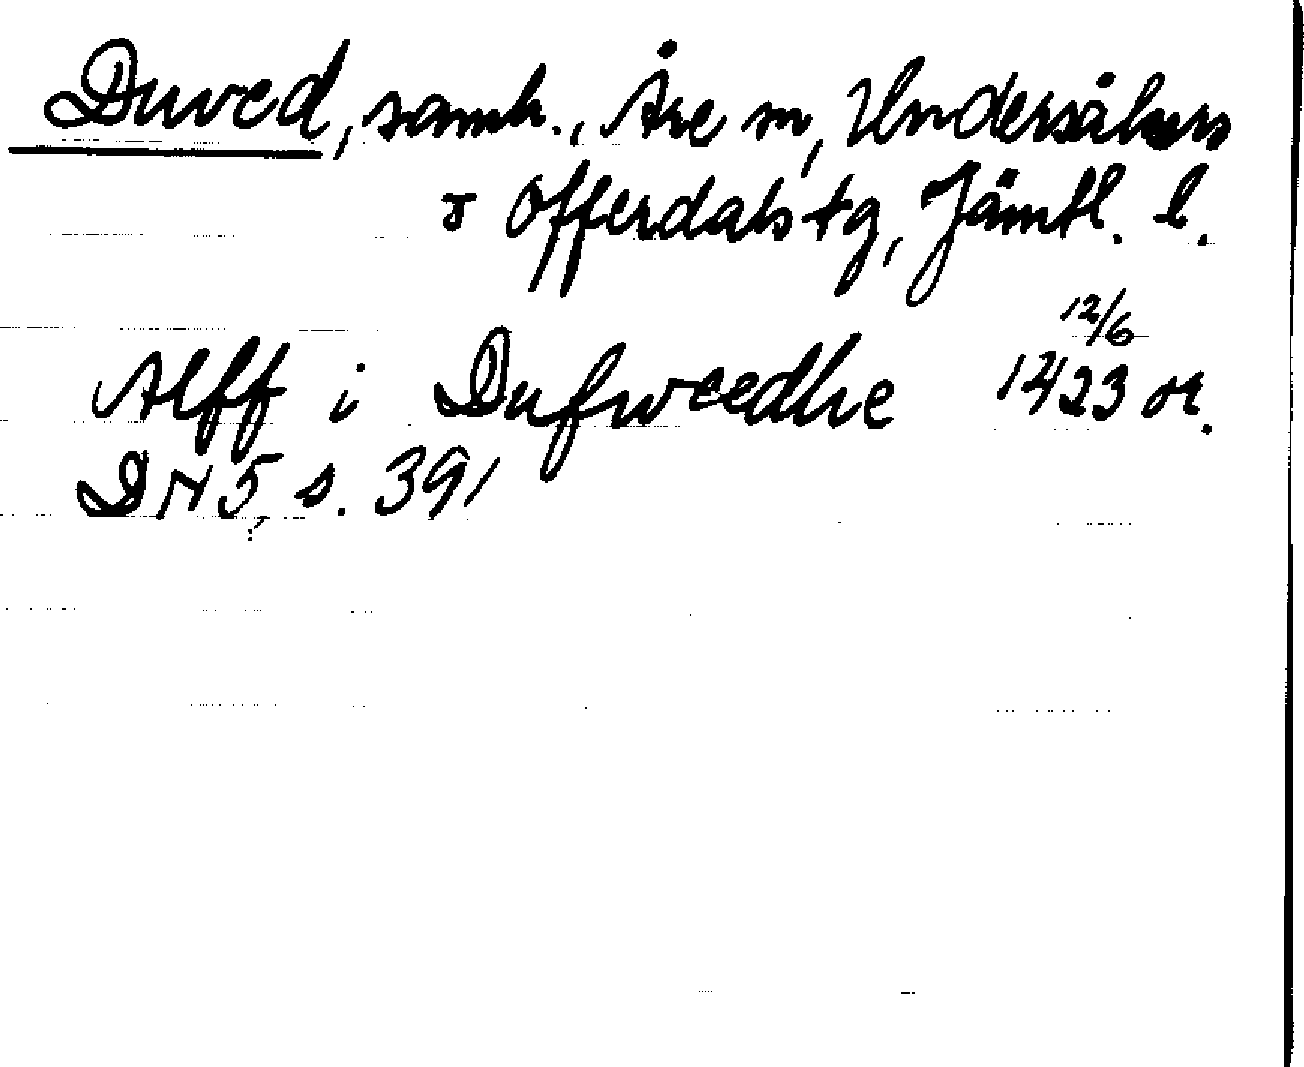 Duved, samh., Åre sn, Undersåkers
o Offerdals tg, Jämtl. l.
Alff i Dufweedhe 12/6 1423 or.
DN 5 s. 391